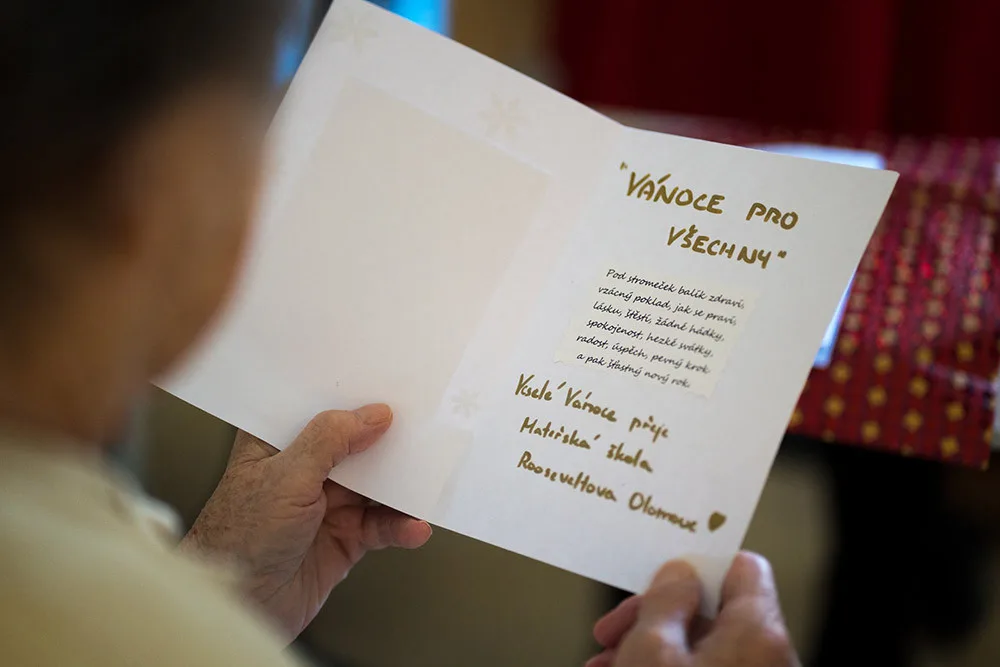 "VÁNOCE PRO
VŠECHNY"
Pod stromeček balík zdraví,
vzácný poklad, jak se praví,
lásku, štěstí, žádné hádky,
spokojenost, hezké svátky,
radost, úspěch, pevný krok
a pak šťastný nový rok.
Veselé Vánoce přeje
Mateřská škola
Rooseveltova Olomouc ♥